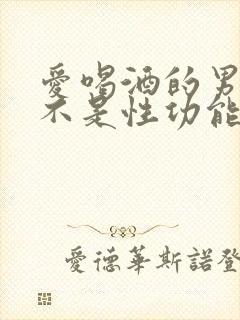 愛喝酒的男
不是性功能
愛德華斯諾登